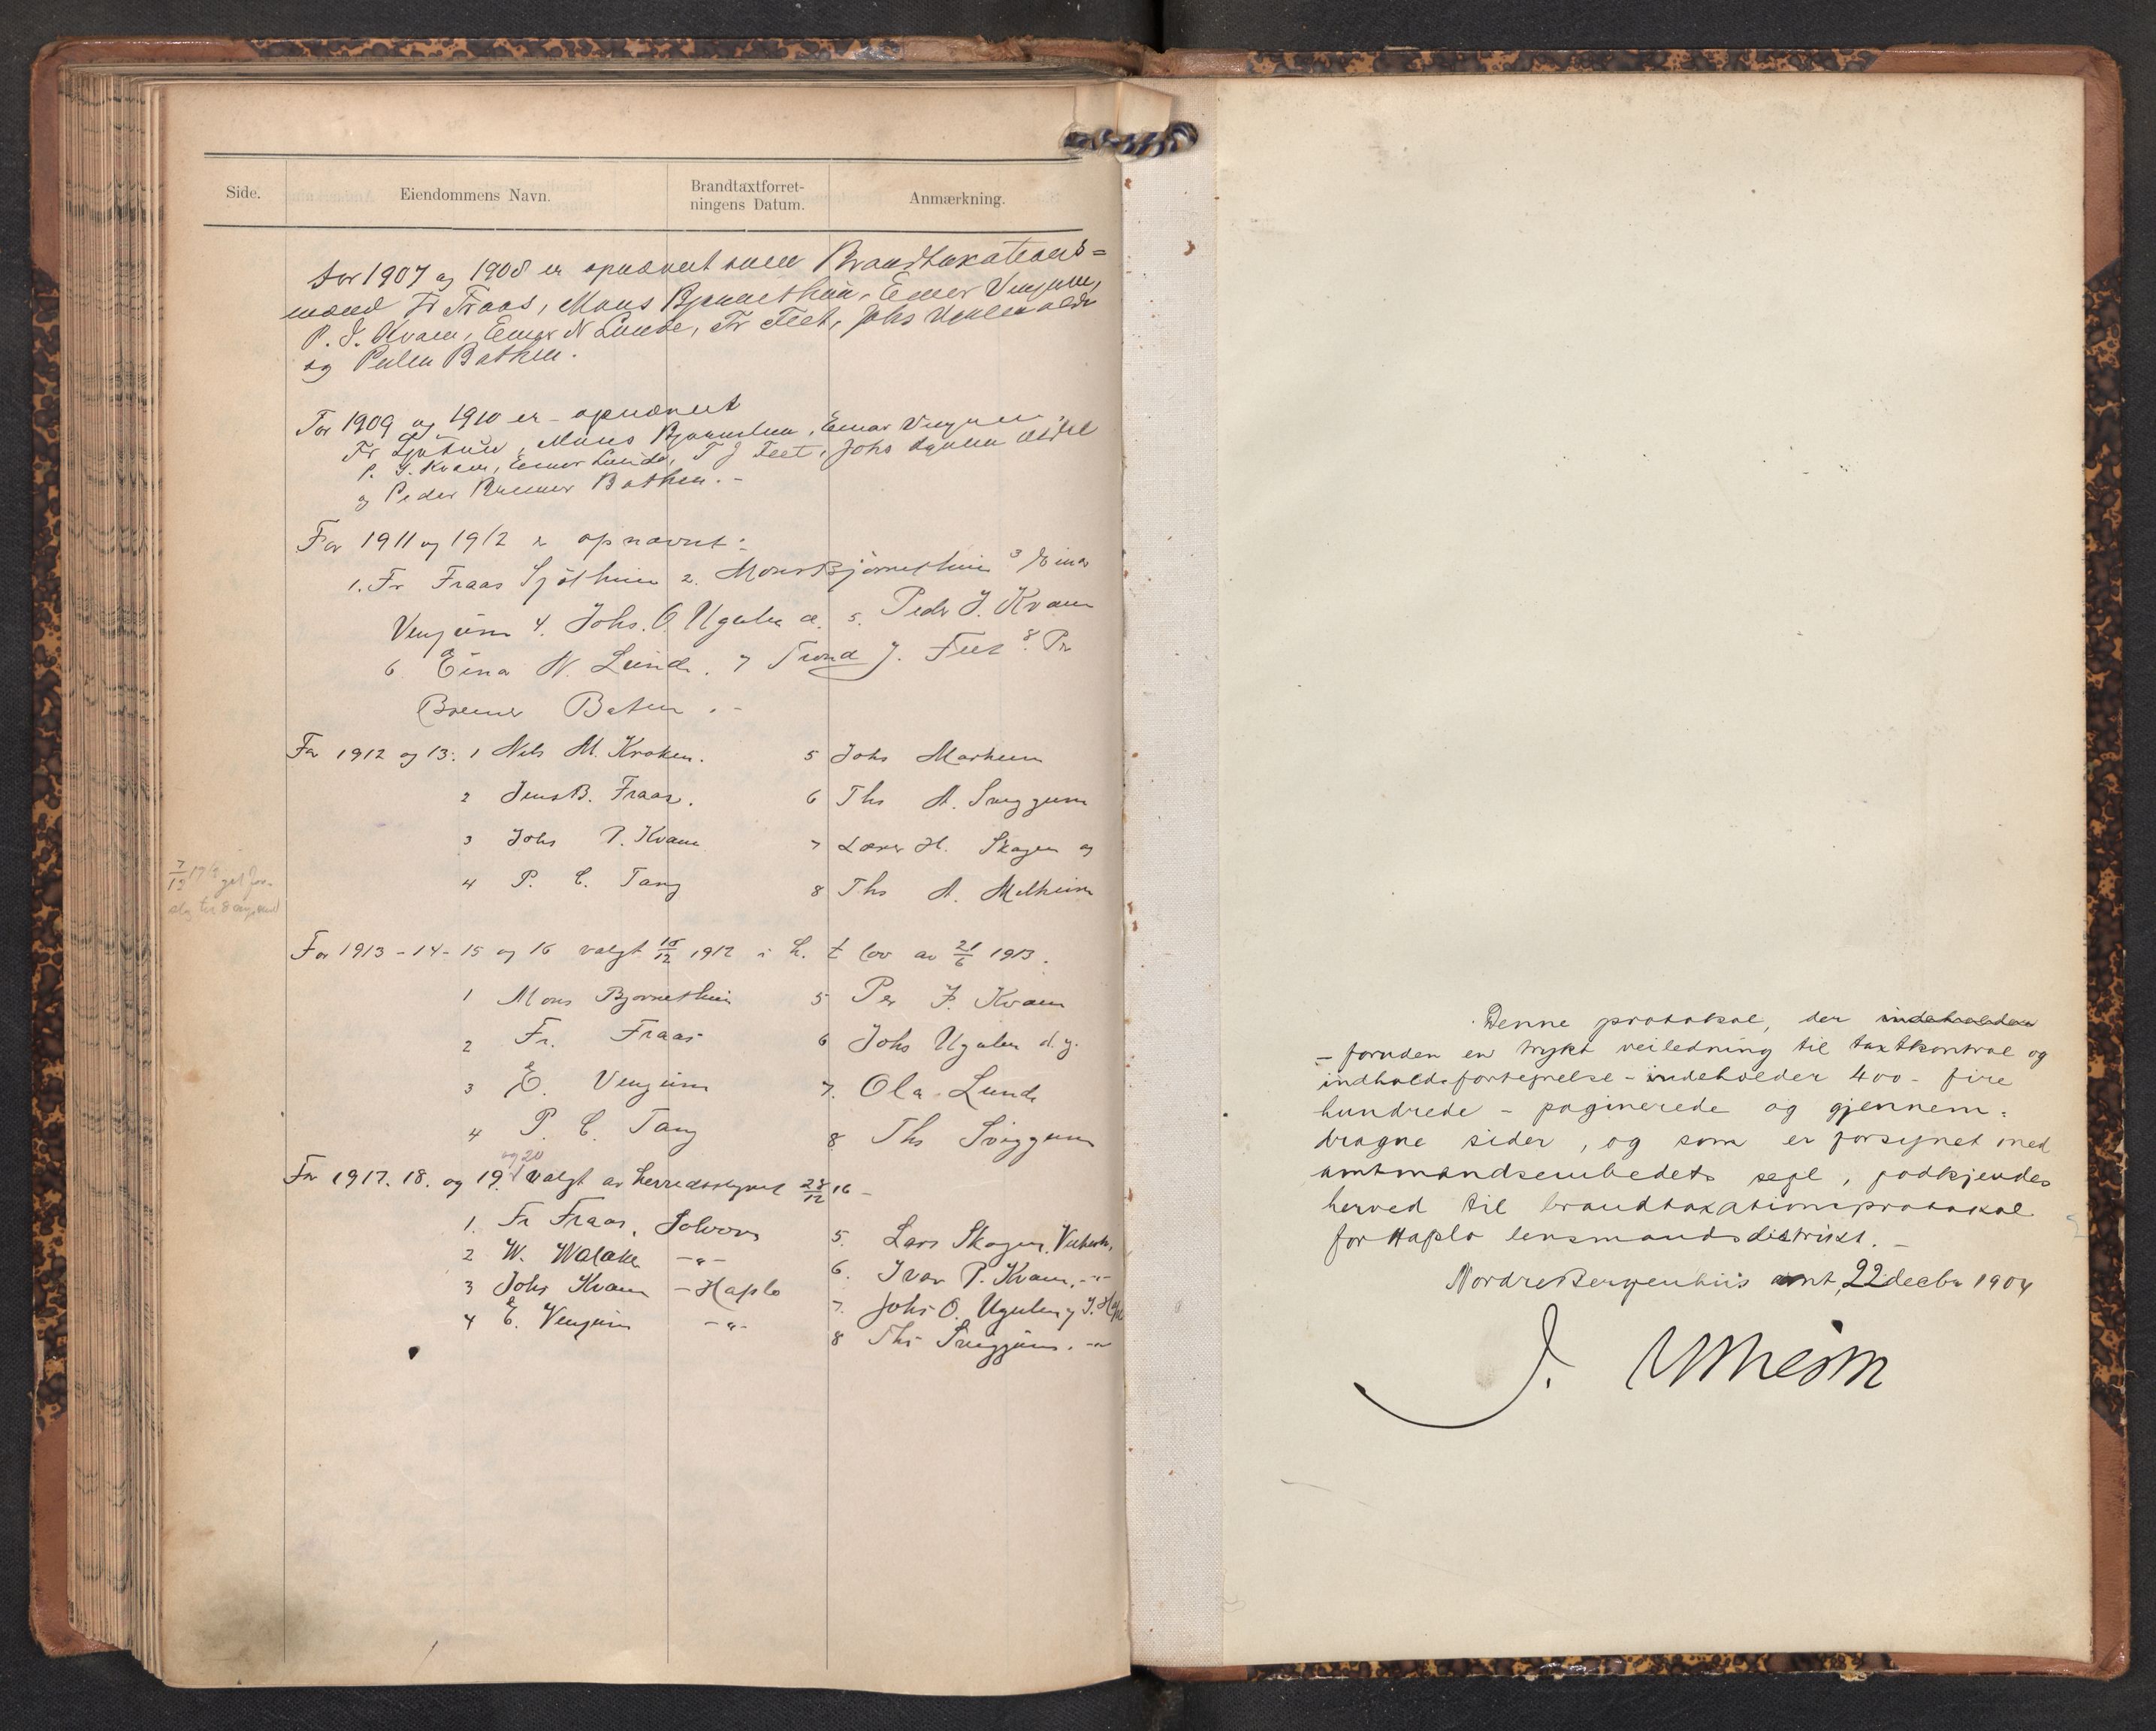 Side.
Eiendommens Navn.
Brandtaxtforret-
ningens Datum.
Anmærkning.
For 1907 og 1908 er opnævnt som Brandtaxations=
mænd Fr Fraas, Mons Bjørnethun, Einer Venjum,
P. J. Kvam, Einar N Lunde, Fr Feet, Johs Ugulen ældr
og Peder Bathen.
For 1909 og 1910 er opnævnt
Fr , Mons Bjørnethun, Einar Venjum
P. J. Kvam, Einar Lunde, T J Feet, Johs Ugulen ældre
og Peder Bremer Bathen. -
For 1911 og 1912 er opnævnt:
1. Fr Fraas Sjøthun 2. Mons Bjørnethun 3 Einar
Venjum 4. Johs. O Ugulen æ. 5. Peder J. Kvam
6 Einar N. Lunde. 7 Trond J. Feet 8. Pr
Bremer Baten . -
For 1912 og 13: 1 Nils M. Kroken.
5 Johs Marheim
2 Jens B. Fraas.
6 Ths A. Sveggum
3 Johs P. Kvam
7 Lærer H. Skagen og
4 P. C. Tang
8 Ths A. Melheim
7/12 17
For 1913 - 14 - 15 og 16 valgt 16/12 1912 i h. t lov av 21/6 1913.
1 Mons Bjørnethun
5 Per J. Kvam
2 Fr. Fraas
6 Johs Ugulen d. y.
3 E. Venjum
7. Ola Lunde
4 P. C. Tang
8 Ths Sveggum
og 20
For 1917. 18. og 19. valgt av herredsstyret 28/12 16 -
1. Fr Fraas, Solvorn
5. Lars Skagen,
2 W. Walaker -"-
6. Ivar P. Kvam, -"-
3 Johs Kvam - Hafslo
7. Johs O. Ugulen y.
4 E. Venjum -"-
8 Ths Sveggum. -"-
Denne protokol, der indeholder
- foruden en trykt veiledning til taxtkontrol og
indholdsfortegnelse - indeholder 400 - fire
hundrede - paginerede og gjennem=
dragne sider, og som er forsynet med
amtmandsembedets segl, godkjendes
herved til brandtaxationsprotokol
for Hafslo lensmandsdistrikt. -
Nordre Bergenhus amt, 22 decbr 1904
J. Utheim